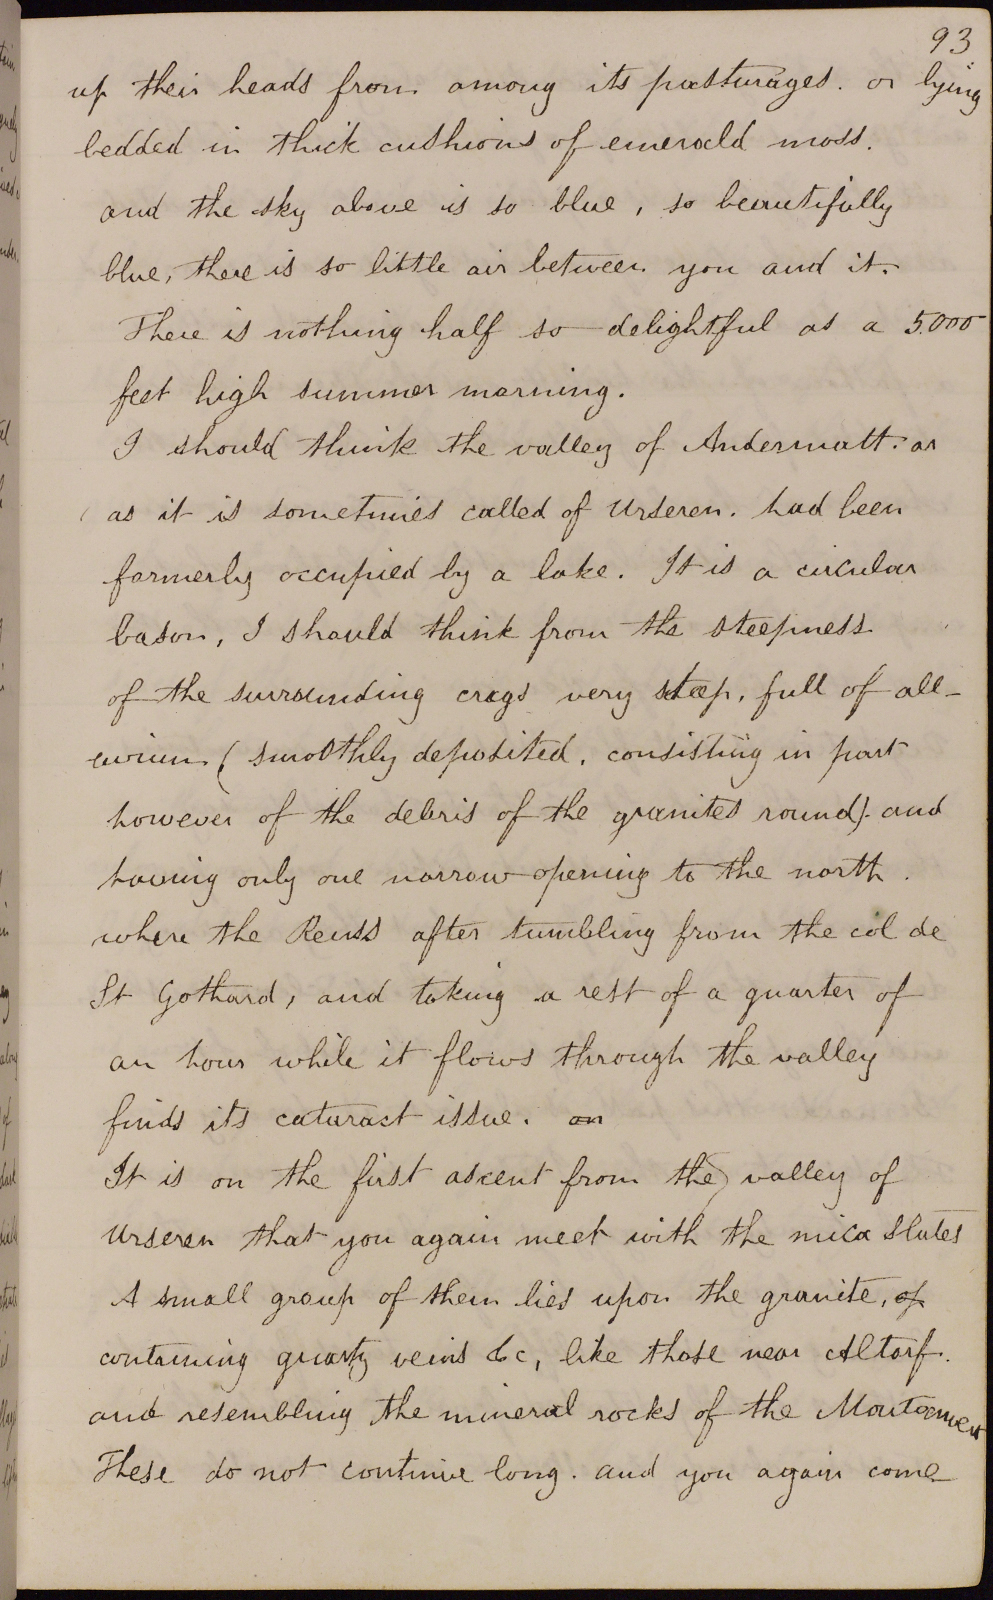 93
up their heads from among its pasturages. or lying
bedded in thick cushions of emerald moss.
and the sky above is so blue, so beautifully
blue, there is so little air between you and it.
There is nothing half so delightful as a 5.000
feet high summer morning.
I should think the valley of Andermatt. or
as it is sometimes called of Urseren. had been
formerly occupied by a lake. It is a circular
bason, I should think from the steepness
of the surrounding crags very steep, full of all-
uvium ( smoothly deposited, consisting in part
however of the debris of the granites round). and
having only one narrow opening to the north.
where the Reuss after tumbling from the col de
St Gothard, and taking a rest of a quarter of
an hour while it flows through the valley
finds its cataract issue. on
It is on the first ascent from the valley of
Urseren that you again meet with the mica slates
A small group of them lies upon the granite, of
containing quartz veins &c, like those near Altorf.
and resembling the mineral rocks of the Montanvert
These do not continue long. and you again come